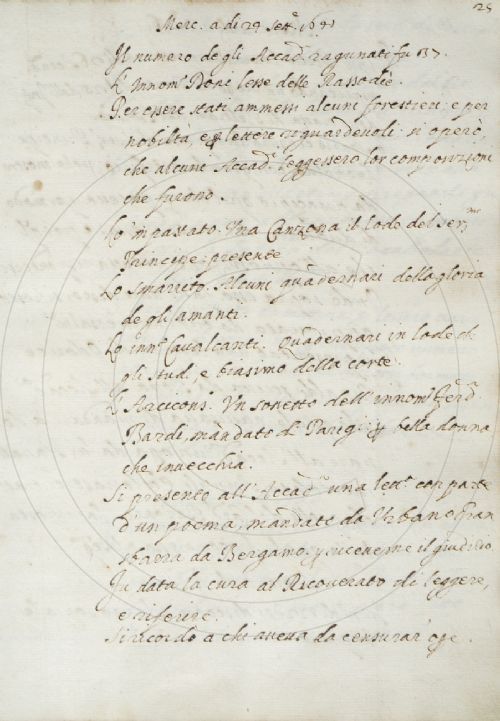 25
Merc. a di 29 Sett.
Il numero degli Accad. ragunati fu
L'Innom. Doni lesse delle Rassodie.
Per essere stati ammessi alcuni forestieri e per
nobiltà, e lettere riguardevoli: si operò,
che alcuni Accad.i leggessero lor composizioni
che furono.
Lo 'mpastato. Una Canzona il lode del Ser.mo
Principe presente
Lo Smarrito. Alcuni quadernari della gloria
degli amanti.
Lo inn.o Cavalcanti. Quadernari in lode
gli stud. e biasimo della corte.
L'Arcicons. Un sonetto dell'innom.
Bardi, mandato di Parigi bella donna
che invecchia.
Si presentò all'Accad.a una lett.a con parte
d'un poema, mandate da Urbano
da Bergamo, riceverne il giudizio
Fu data la cura al Ricoverato di leggere,
e riferire.
Si ricordò a chi aveva da censurar